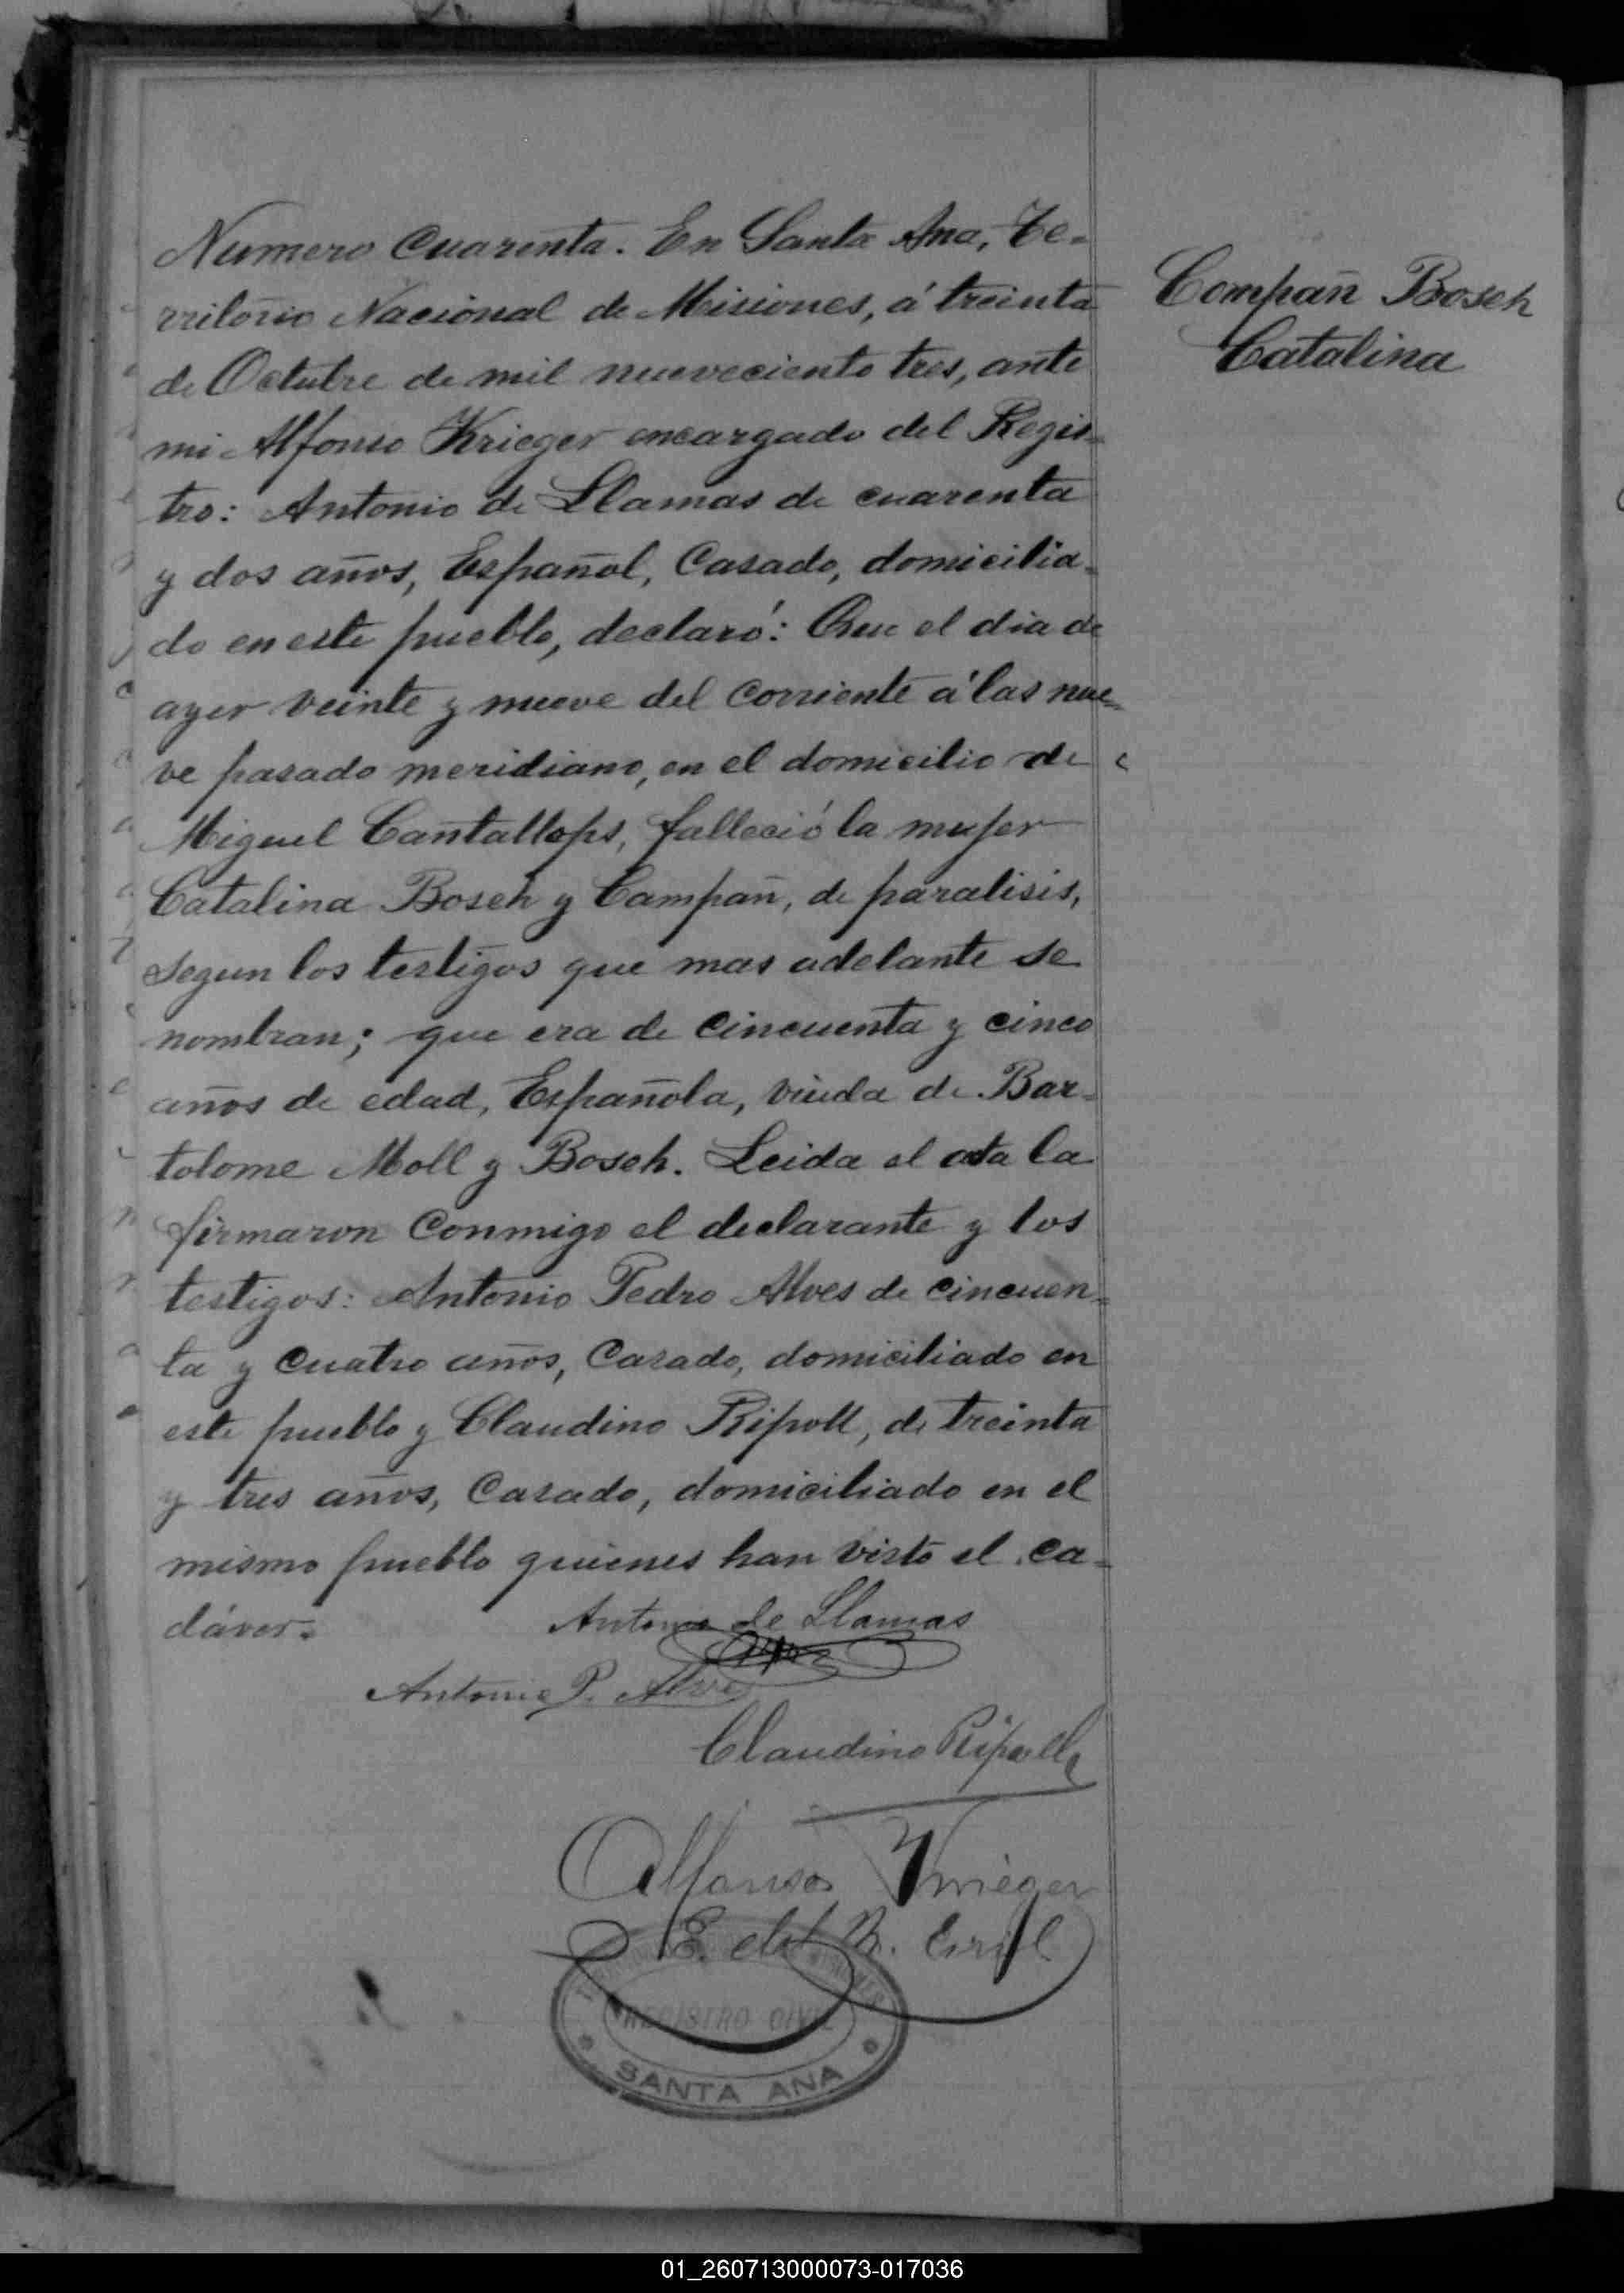 Numero Cuarenta. En Santa Ana, Te-
rritorio Nacional de Misiones, á treinta
de Octubre de mil nueveciento tres, ante
mi Alfonso Krieger encargado del Regis-
tro: Antonio de Llamas de cuarenta
y dos años, Español, Casado, domicilia-
do en este pueblo, declaró: Que el dia de
ayer veinte y nueve del corriente á las nue-
ve pasado meridiano, en el domicilio de
Miguel Cantallops, falleció la mujer
Catalina Bosch y Campañ, de paralisis,
segun los testigos que mas adelante se
nombran; que era de cincuenta y cinco
años de edad, Española, viuda de Bar-
tolome Moll y Bosch. Leida el acta la
firmaron conmigo el declarante y los
testigos: Antonio Pedro Alves de cincuen-
ta y cuatro años, Casado, domiciliado en
este pueblo y Claudino Ripoll, de treinta
y tres años, Casado, domiciliado en el
mismo pueblo quienes han visto el ca-
dáver.
Antonio de Llamas
Antonio P. Alves
Claudino Ripoll
Alfonso Krieger
E. del R. Civil
REGISTRO CIVIL
SANTA ANA
Compañ Bosch
Catalina
01_260713000073-017036